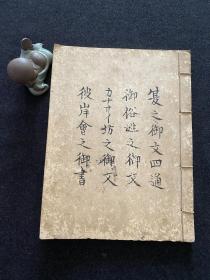 夏之御文四通
御俗姓之御文
カナカイ坊之御文
彼岸會之御書